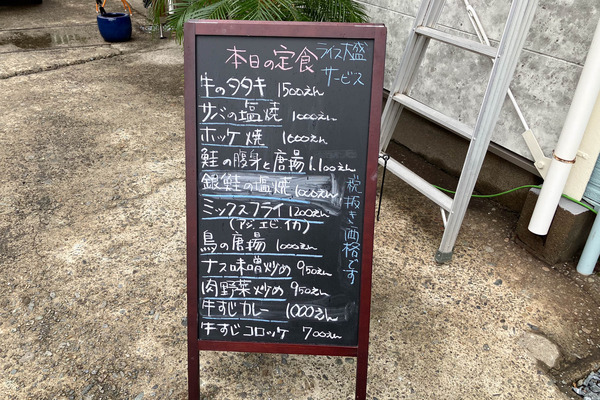 本日の定食
ライス大盛
サービス
牛のタタキ 1500えん
サバの塩焼 1000えん
ホッケ焼 1000えん
鮭の腹身と唐揚 1,100えん
銀鮭の塩焼 1000えん
ミックスフライ 1200えん
(アジ、エビ、イカ)
鳥の唐揚 1000えん
ナス味噌炒め 950えん
肉野菜炒め 950えん
牛すじカレー 1000えん
牛すじコロッケ 700えん
税抜き価格です